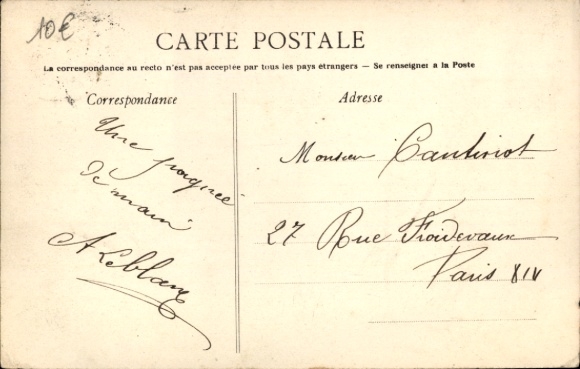 10€
CARTE POSTALE
La correspondance au recto n'est pas acceptée par tous les pays étrangers — Se renseigner à la Poste
Correspondance
Adresse
Une poignée
de main
A Leblanc
Monsieur
27 Rue Froidevaux
Paris XIV